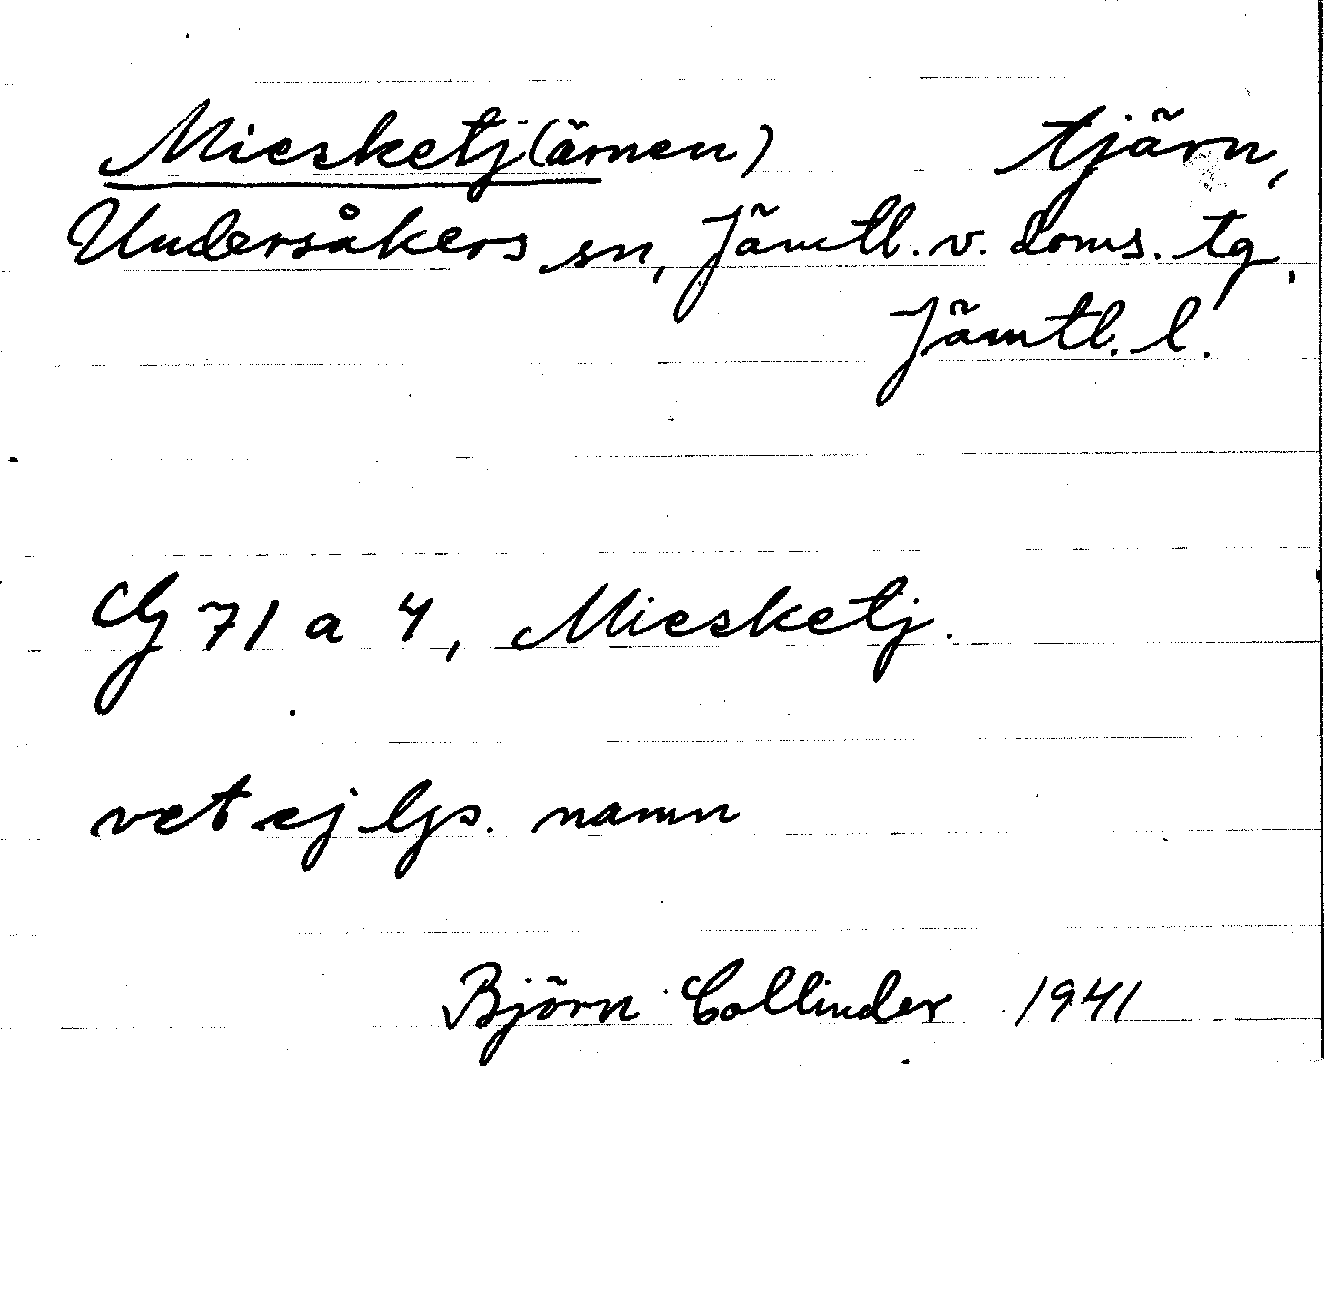 Miesketj(ärnen) tjärn,
Undersåkers sn, Jämtl. v. doms. tg,
Jämtl. l.
Cg 71 a 4, Miesketj.
vet ej lps. namn
Björn Collinder 1941